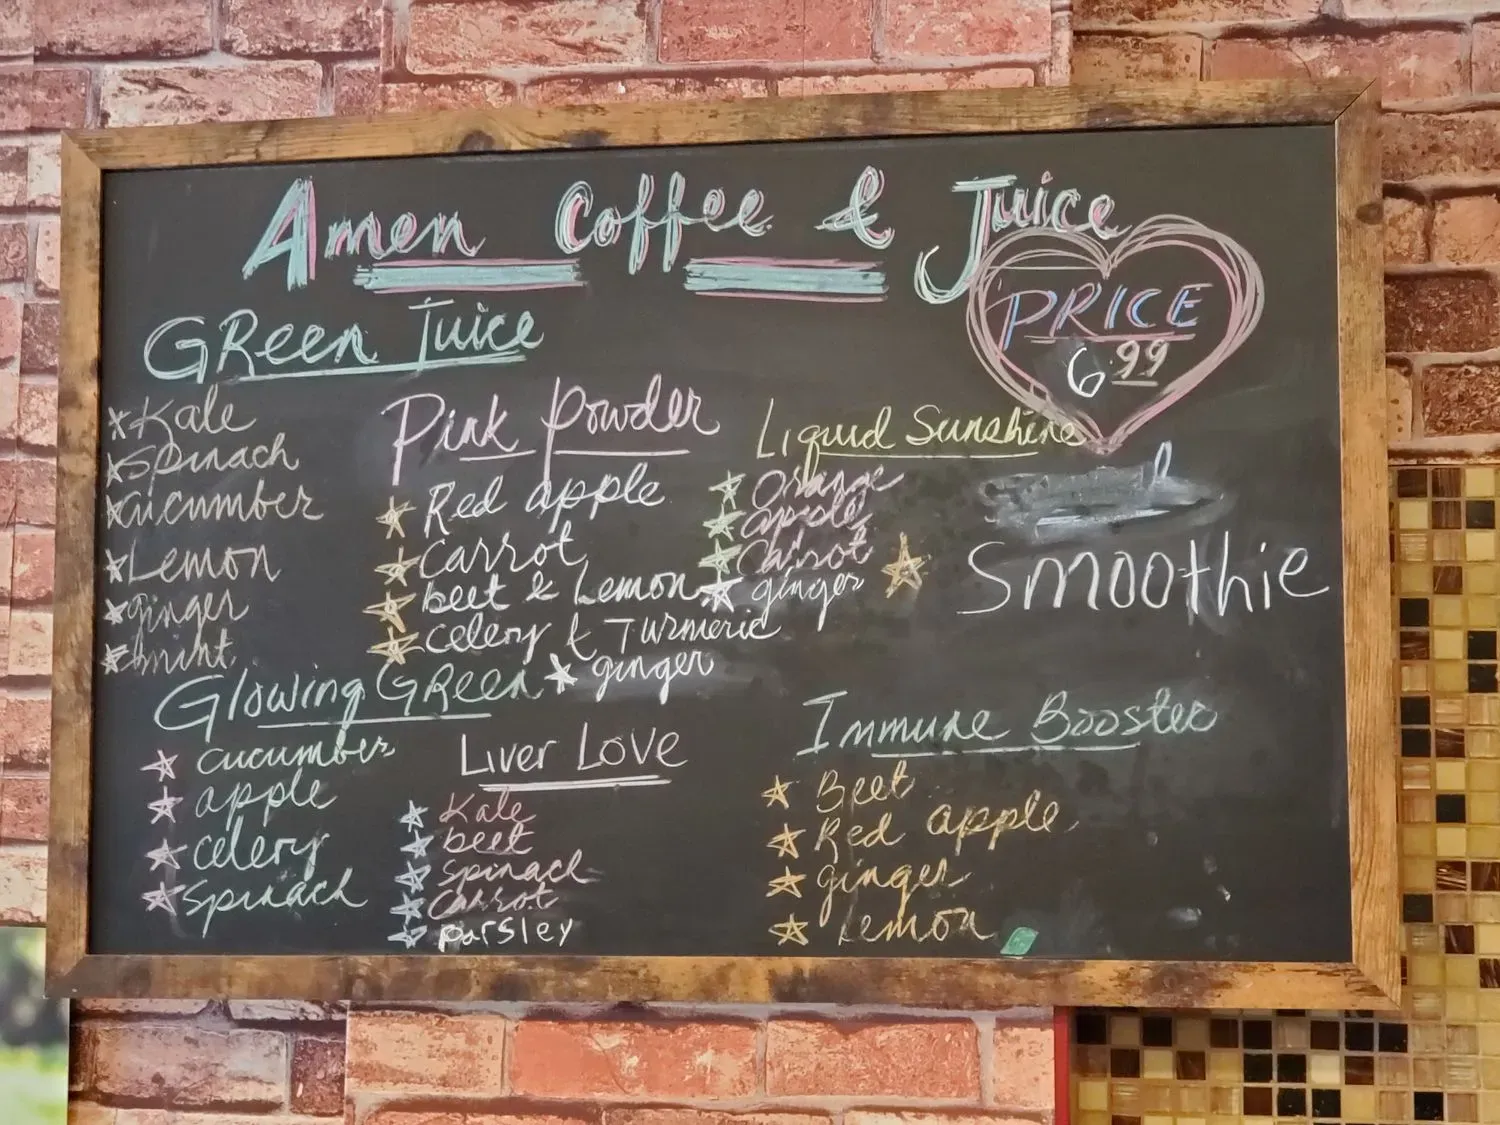 Amen Coffee & Juice
PRICE
6.99
Green Juice
Kale
Spinach
Cucumber
Lemon
ginger
mint
Pink Powder
Red apple
Carrot
beet & Lemon
Celery & Turmeric
ginger
Liquid Sunshine
Orange
apple
Carrot
ginger
Smoothie
Glowing Green
cucumber
apple
celery
Spinach
Liver Love
Kale
beet
Spinach
Carrot
parsley
Immune Booster
Beet
Red apple
ginger
Lemon